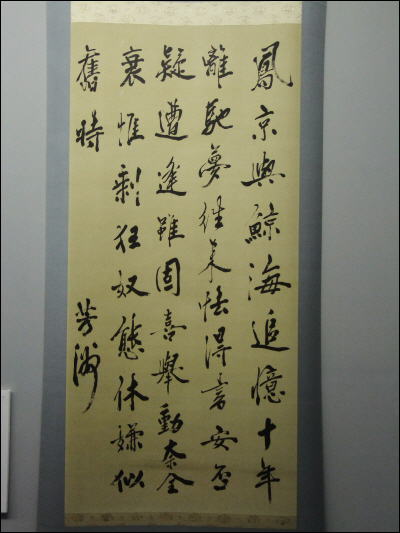 鳳京與鯨海追憶十年
離馳夢往来怯得書安否
疑遭逢雖固喜舉動奈全
衰惟剩狂奴態休嫌似
舊時
芳洲